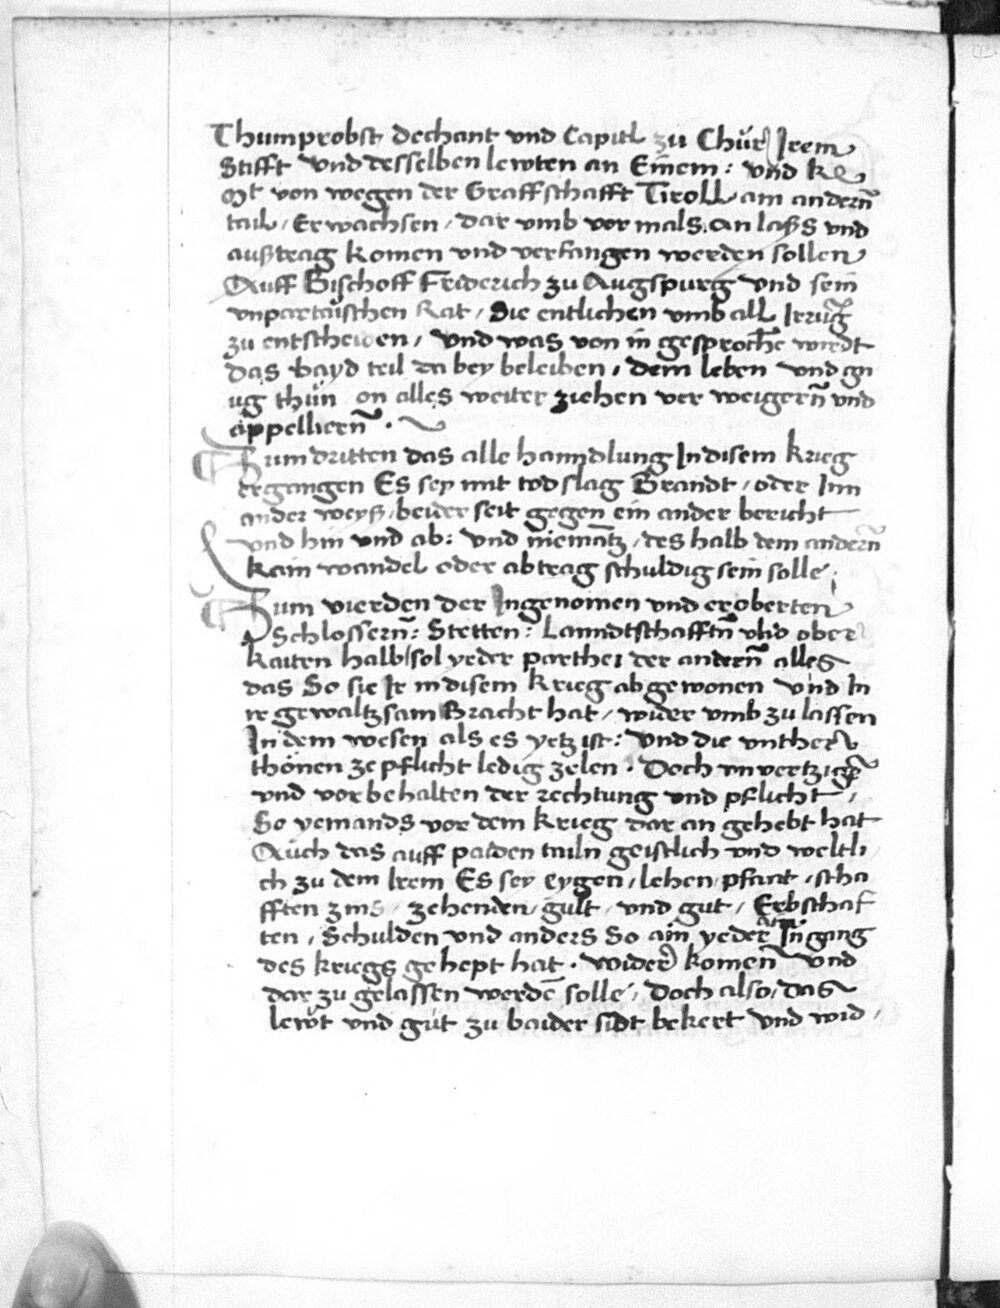 Thumprobst dechant vnd Capitl zu Chůr Irem
Stifft vnd desselben lewten an Einem: vnd Kө
Mt von wegen der Graffschafft Tiroll am andern̄
tail, Erwachsen, dar vmb vor mals an laß vnd
außtrag komen vnd verfangen werden sollen
Auff Bischoff Friderich zu Augspurg vnd sein
vnpartaischen Rat, die entlichen vmb all Irrūg
zu entscheiden, vnd was von in gesproch̄e wirdt
das bayd teil da bey beleiben, dem leben vnd gn
ug thůn on alles weiter ziehen ver weigern̄ vnd
appelliern̄.
Zum dritten das alle hanndlung In disem krieg
ergangen Es sey mit tod slag Brandt, oder Inn
ander weyß, beider seit gegen ein ander bericht
vnd hin vnd ab: vnd niemātz, des halb dem andern̄
kain wandel oder abtrag schuldig sein solle,
Zum vierden der Ingenomen vnd eroberten
Schlossern̄: Stetten: Lanndtschafftn̄ vnd ober
kaiten halb sol yeder parthei der andern̄ alles
das So sie Ir in disem krieg ab gewonen vnd In
ir gewaltzsam Bracht hat, wider vmb zu lassen
In dem wesen als es yetz ist: vnd die vnther
thonen ze pflicht ledig zelen. Doch vnvertzigē
vnd vorbehalten der rechtung vnd pflicht,
So yemands vor dem krieg dar an gehebt hat
Auch das auff paiden tailn geistlich vnd weltli
ch zu dem Irem Es sey eygen, lehen, pfant, scha
fften zins, zehenden, gult, vnd gut, Erbschaf
ten, Schulden vnd anders So ain yeder In gang
des kriegs gehept hat. wider komen̄ vnd
dar zu gelassen werdē solle, doch also, das
lewt vnd gut zu baider sidt bekert vnd wid,